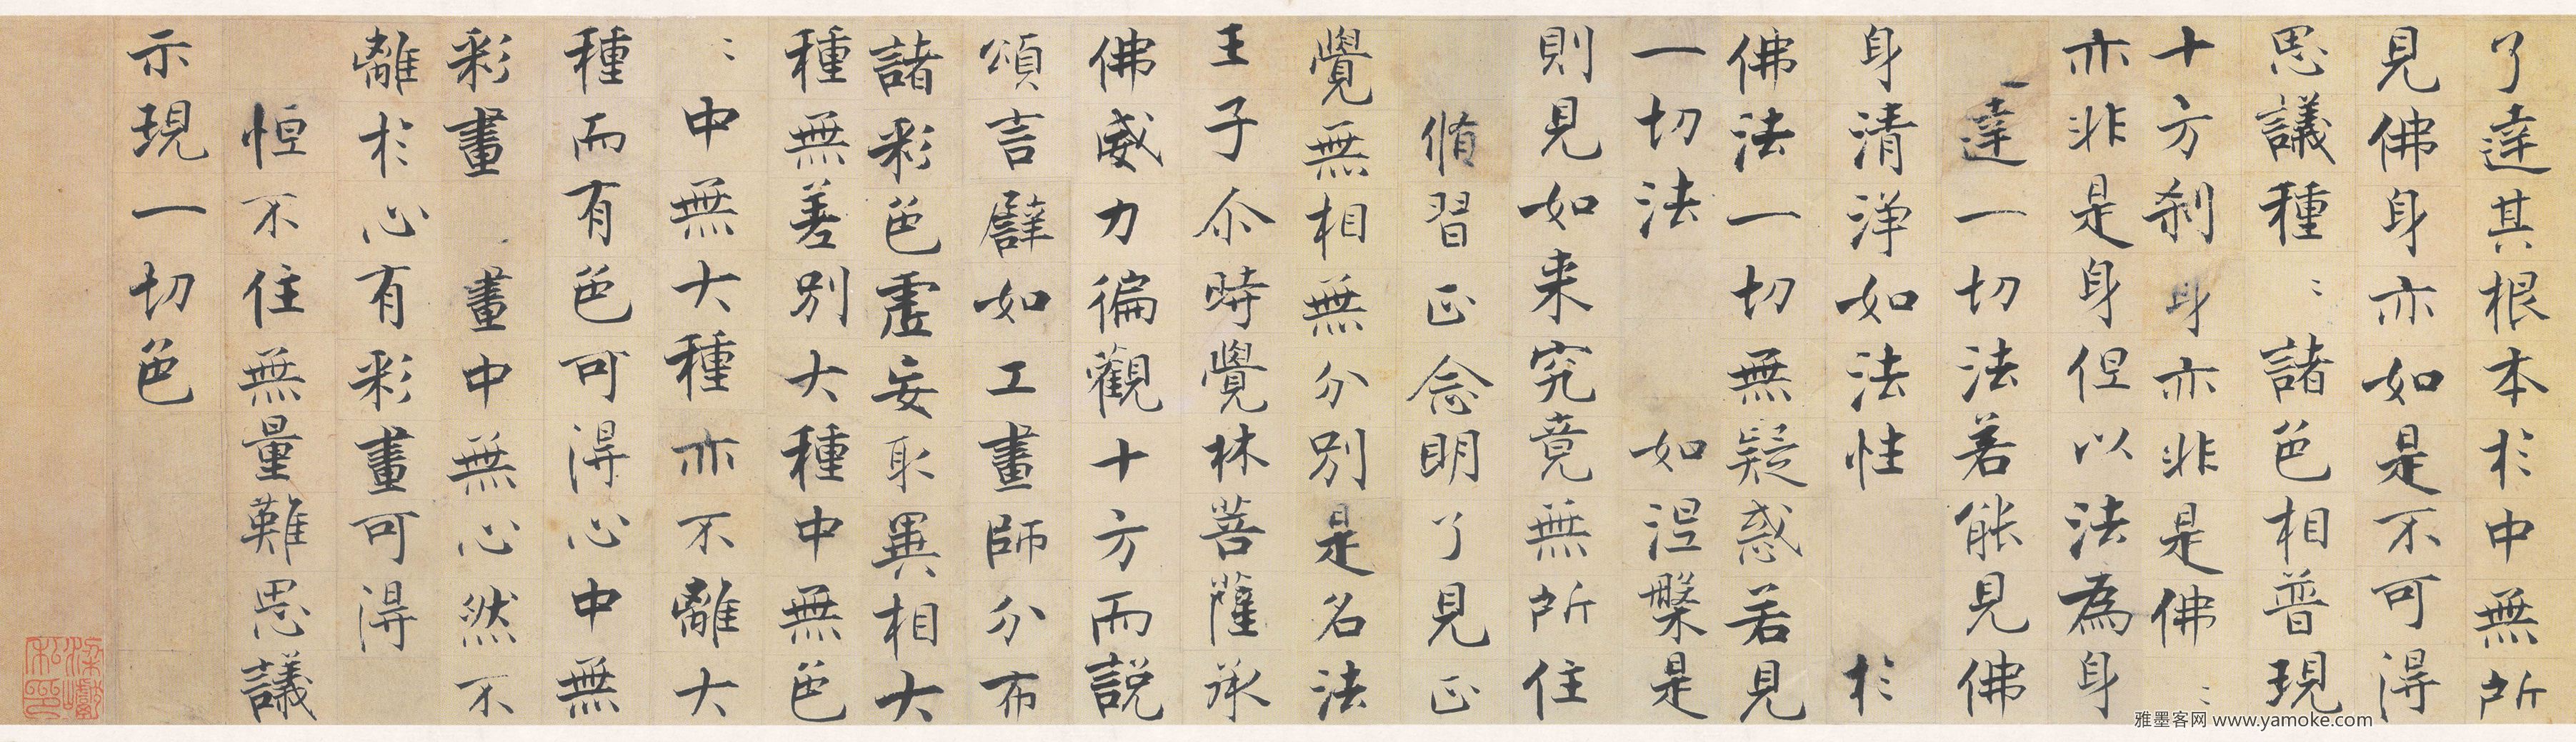 了達其根本於中無所
見佛身亦如是不可得
思議種〻諸色相普現
十方刹身亦非是佛〻
亦非是身但以法為身
達一切法若能見佛
身清淨如法性 於
佛法一切無疑惑若見
一切法 如涅槃是
則見如来究竟無所住
脩習正念明了見正
覺無相無分別是名法
王子尒時覺林菩薩承
佛威力徧觀十方而說
頌言譬如工畫師分布
諸彩色虛妄取異相大
種無差別大種中無色
〻中無大種亦不離大
種而有色可得心中無
彩畫 畫中無心然不
離於心有彩畫可得
恒不住無量難思議
示現一切色
雅墨客网 www.yamoke.com